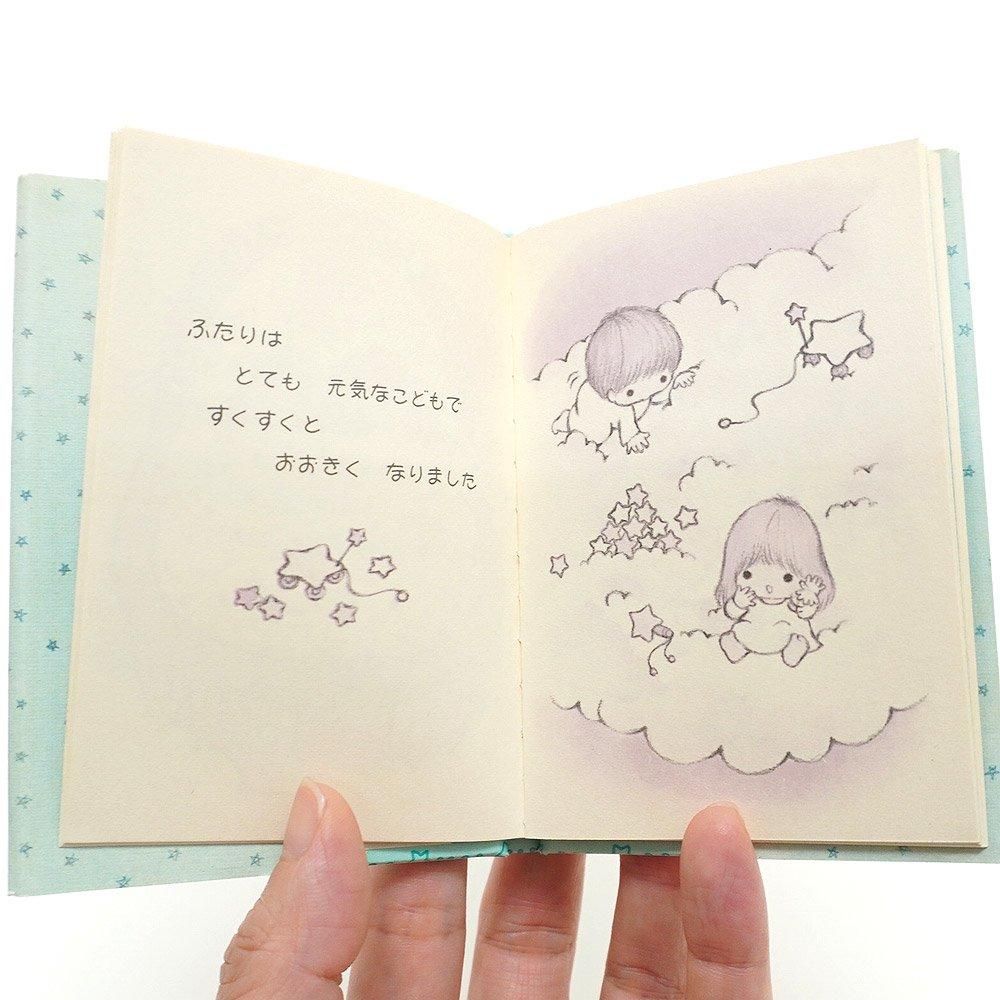 ふたりは
とても 元気なこどもで
すくすくと
おおきく なりました